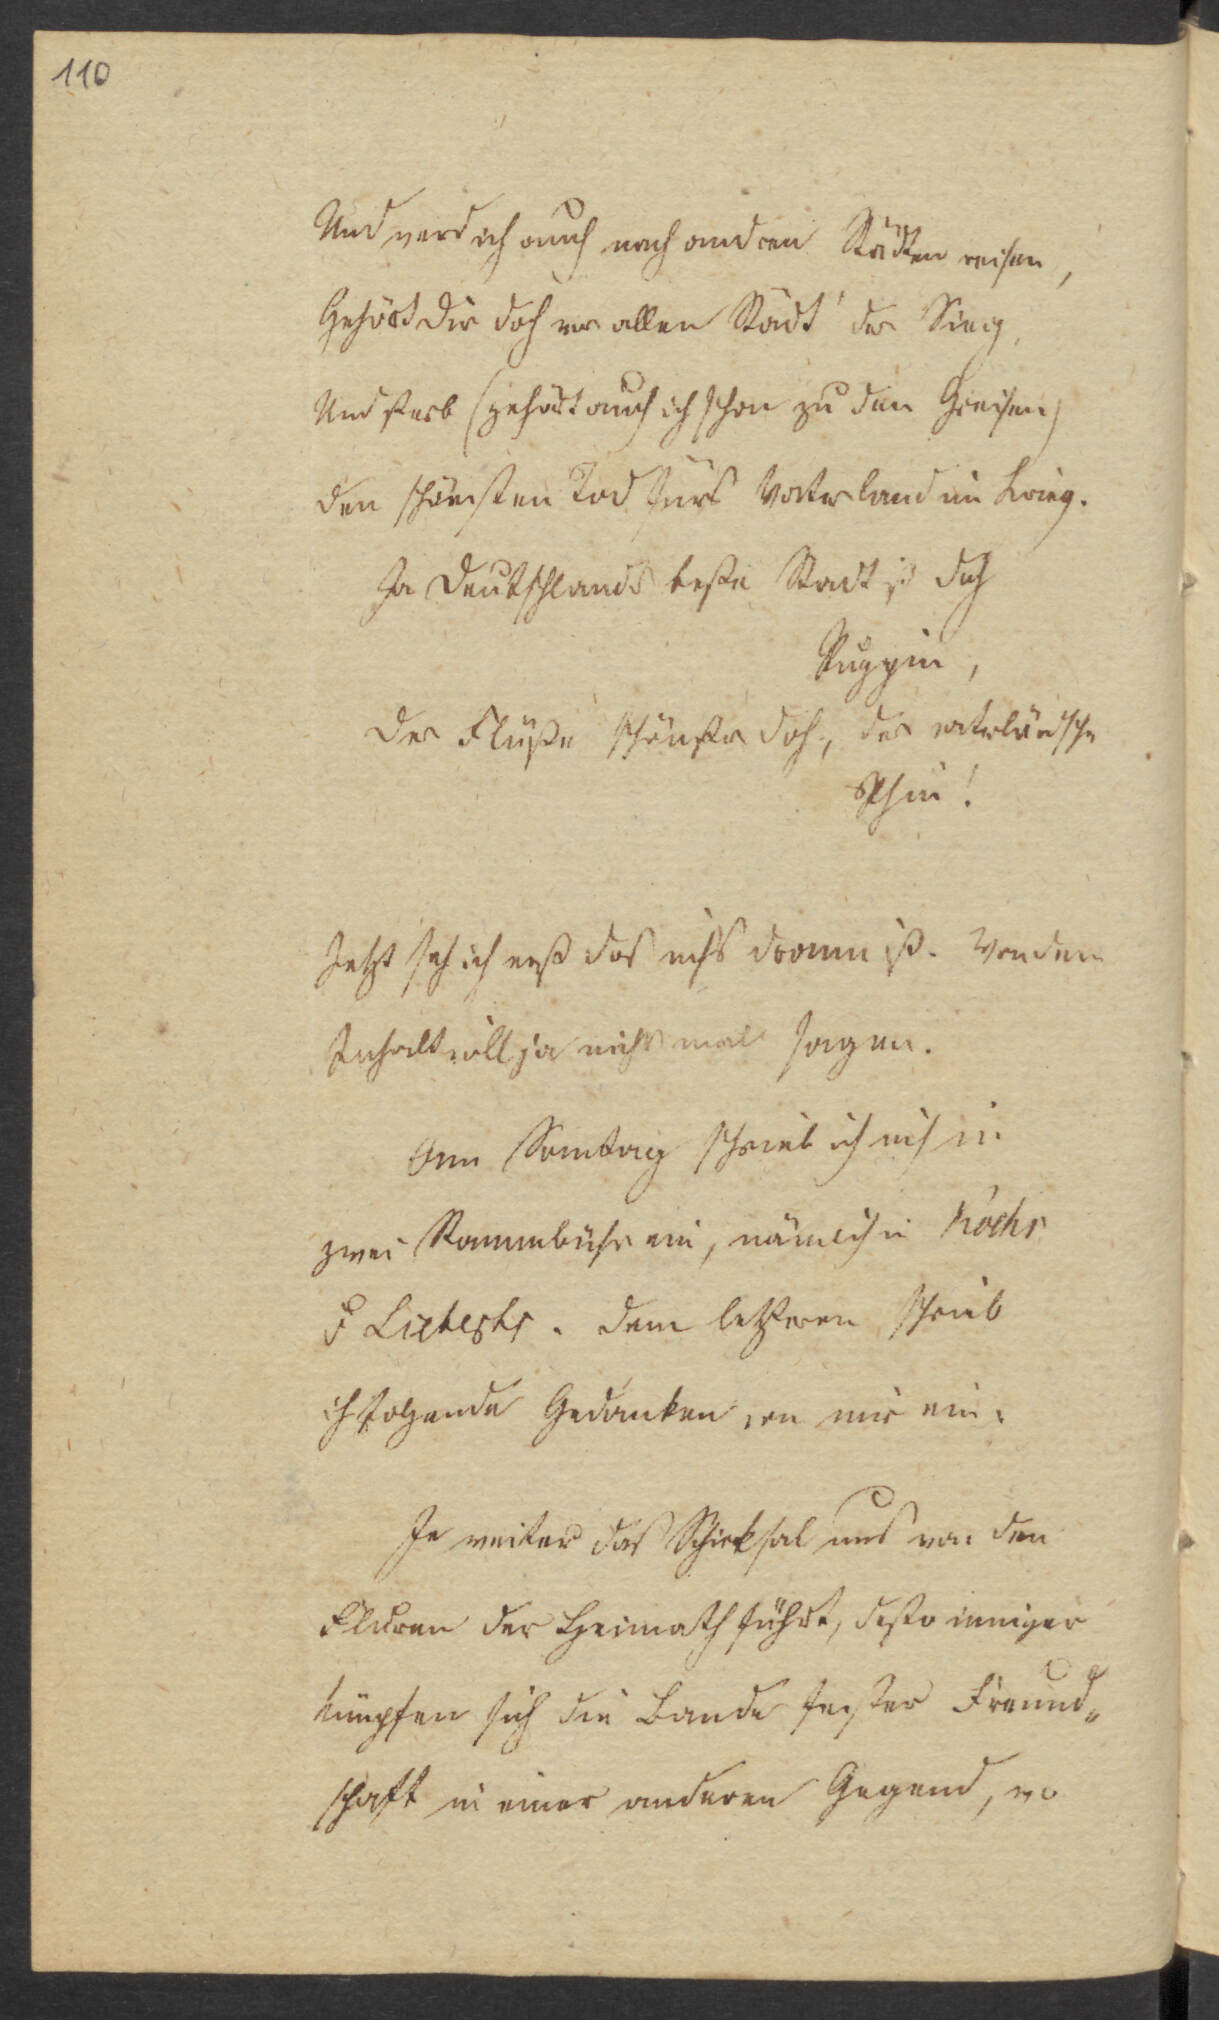 110
Und werd ich auch nach andren Städten reisen,
Gehört dir doch vor allen Städt' der Sieg,
Und sterb (gehört auch ich schon zu den Greisen)
den schönsten Tod fürs Vaterland im Krieg.
Ja Deutschlands beste Stadt ist doch
Ruppin,
Der Flüße schönster doch, der vaterländsche
Rhin!
Jetzt seh ich erst das nichts dran ist. Von dem
Inhalt will ja nichts mal sagen.
Am Sonntag schrieb ich mich in
zwei Stammbücher ein, nämlich in Kochs
u. dem letzteren schrieb
ich folgende Gedanken von mir ein.
Je weiter das Schicksal uns von den
Fluren der Heimath führt, desto inniger
knüpfen sich die Bande fester Freund„
schaft in einer anderen Gegend, wo